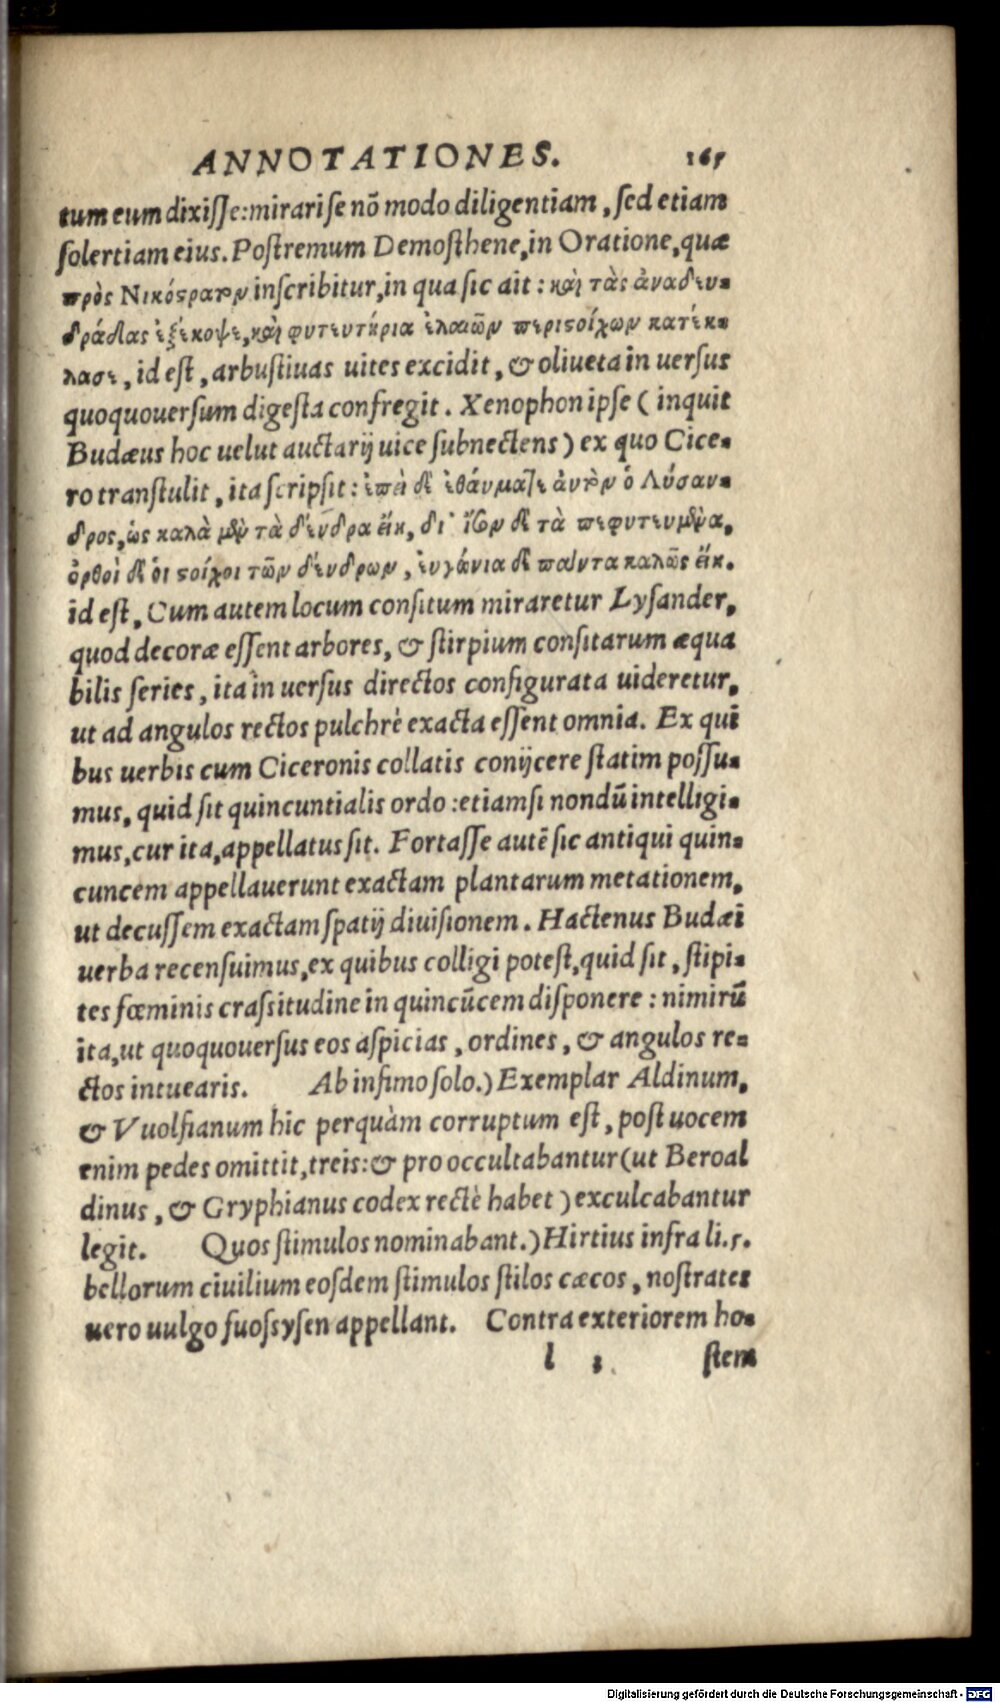 ANNOTATIONES. 165
tum eum dixiſſe:mirari ſe nō modo diligentiam, ſed etiam
ſolertiam eius. Poſtremum Demoſthene,in Oratione,quæ
πρὸς Νικόϛρατον inſcribitur,in qua ſic ait: καὶ τὰς ἀναδεν-
δράδας ἐξέκοψε,καὶ φυτευτήρια ἐλαιῶν περιϛοίχων κατέκ-
λασε, id eſt, arbuſtiuas uites excidit, & oliueta in uerſus
quoquouerſum digeſta confregit. Xenophon ipſe ( inquit
Budæus hoc uelut auctarij uice ſubnectens) ex quo Cice-
ro tranſtulit, ita ſcripſit: ἐπεὶ δὲ ἐθάυμαζε ἀυτὸν ὁ Λύσαν-
δρος,ὡς καλὰ μὲν τὰ δένδρα εἴη, δι' ἴσου δὲ τὰ πεφυτευμένα,
ὀρθοὶ δὲ ὁι ϛοίχοι τῶν δένδρων, ἐυγώνια δὲ πάντα καλῶς εἴη.
id eſt, Cum autem locum conſitum miraretur Lyſander,
quod decoræ eſſent arbores, & ſtirpium conſitarum æqua
bilis ſeries, ita in uerſus directos configurata uideretur,
ut ad angulos rectos pulchrè exacta eſſent omnia. Ex quī
bus uerbis cum Ciceronis collatis conijcere ſtatim poſſu-
mus, quid ſit quincuntialis ordo:etiamſi nondū intelligi-
mus,cur ita,appellatus ſit. Fortaſſe autē ſic antiqui quin-
cuncem appellauerunt exactam plantarum metationem,
ut decuſſem exactam ſpatij diuiſionem. Hactenus Budæi
uerba recenſuimus,ex quibus colligi poteſt,quid ſit, ſtipi-
tes fœminis craſsitudine in quincūcem diſponere: nimirū
ita,ut quoquouerſus eos aſpicias, ordines, & angulos re-
ctos intuearis. Ab infimo ſolo.) Exemplar Aldinum,
& Vuolfianum hic perquàm corruptum eſt, poſt uocem
enim pedes omittit,treis:& pro occultabantur(ut Beroal
dinus, & Gryphianus codex rectè habet) exculcabantur
legit. Quos ſtimulos nominabant.) Hirtius infra li.5.
bellorum ciuilium eoſdem ſtimulos ſtilos cæcos, noſtrates
uero uulgo fuoſsyſen appellant. Contra exteriorem ho-
l 3 ſtem
Digitalisierung gefördert durch die Deutsche Forschungsgemeinschaft - DFG